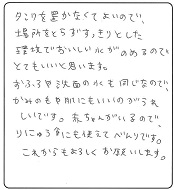 タンクを置かなくてよいので、
場所をとらず、すっきりとした
環境でおいしい水がのめるので、
とてもいいと思います。
おふろや洗面の水も同じなので、
かみのもや肌にもいいのがうれ
しいです。赤ちゃんがいるので、
りにゅう食にも使えてべんりです。
これからもよろしくお願いします。